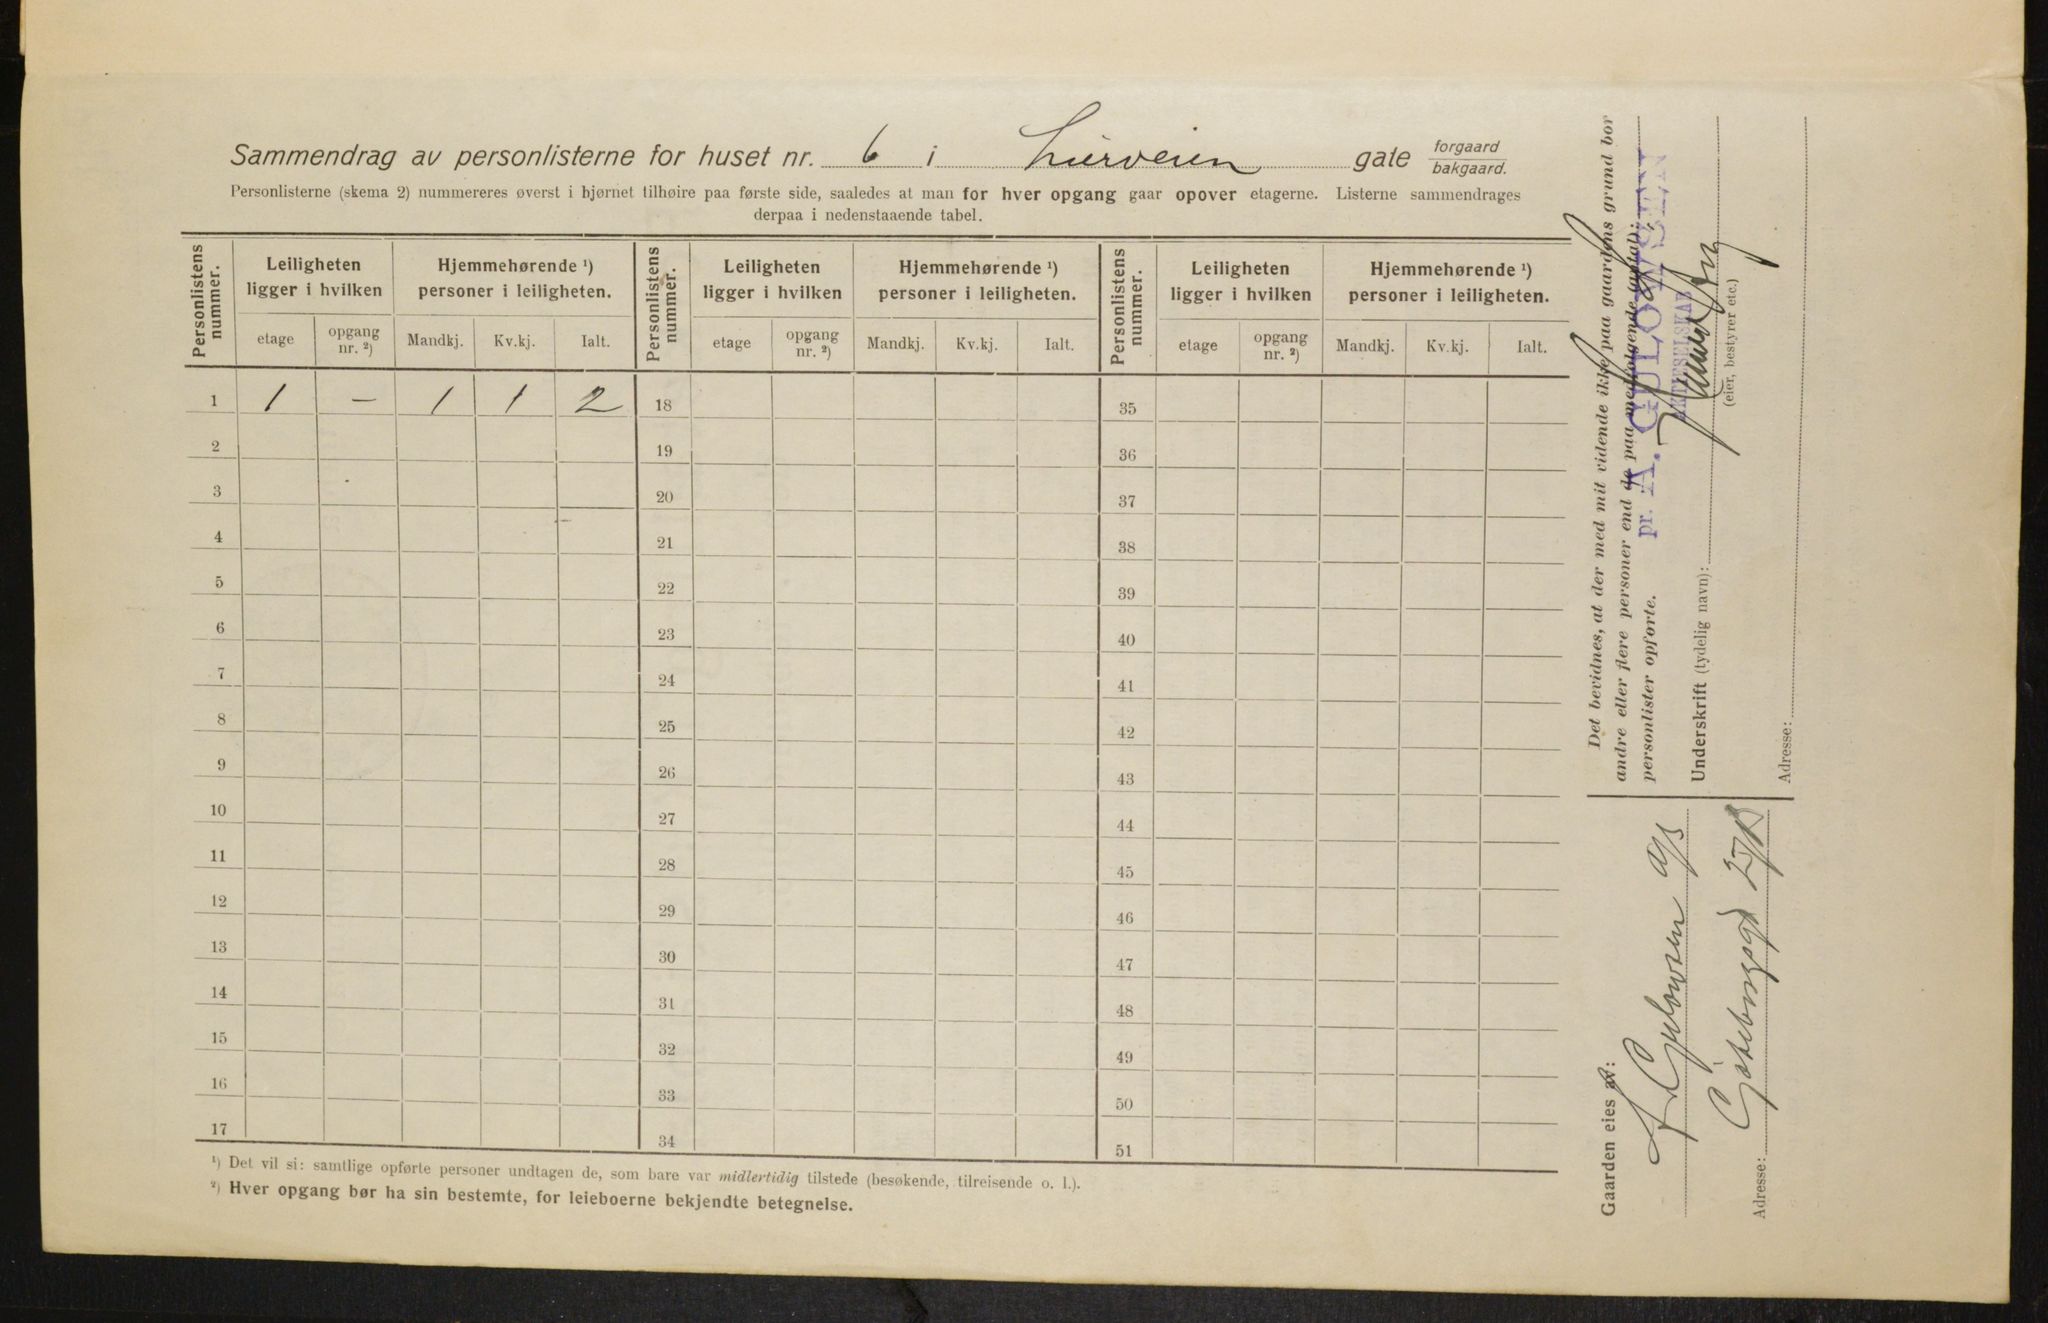 Sammendrag av personlisterne for huset nr. 6 i Lierveien gate forgaard bakgaard.
Personlisterne (skema 2) nummereres øverst i hjørnet tilhøire paa første side, saaledes at man for hver opgang gaar opover etagerne. Listerne sammendrages
derpaa i nedenstaaende tabel.
Personlistens nummer. Leiligheten ligger i hvilken Hjemmehørende ¹) personer i leiligheten. Personlistens nummer. Leiligheten ligger i hvilken Hjemmehørende ¹) personer i leiligheten. Personlistens nummer. Leiligheten ligger i hvilken Hjemmehørende ¹) personer i leiligheten.
etage opgang nr. ²) Mandkj. Kv.kj. Ialt. etage opgang nr. ²) Mandkj. Kv.kj. Ialt. etage opgang nr. ²) Mandkj. Kv.kj. Ialt.
1 1 – 1 1 2 18 35
2 19 36
3 20 37
4 21 38
5 22 39
6 23 40
7 24 41
8 25 42
9 26 43
10 27 44
11 28 45
12 29 46
13 30 47
14 31 48
15 32 49
16 33 50
17 34 51
¹) Det vil si: samtlige opførte personer undtagen de, som bare var midlertidig tilstede (besøkende, tilreisende o. l.).
²) Hver opgang bør ha sin bestemte, for leieboerne bekjendte betegnelse.
Det bevidnes, at der med mit vidende ikke paa gaardens grund bor
andre eller flere personer end de paa medfølgende (antal):
personlister opførte.
pr. A. GULOWSEN
AKTIESELSKAB
Underskrift (tydelig navn):
(eier, bestyrer etc.)
Adresse:
Gaarden eies av:
A Gulowsen A/S
Adresse: Gøteborggt 27 B